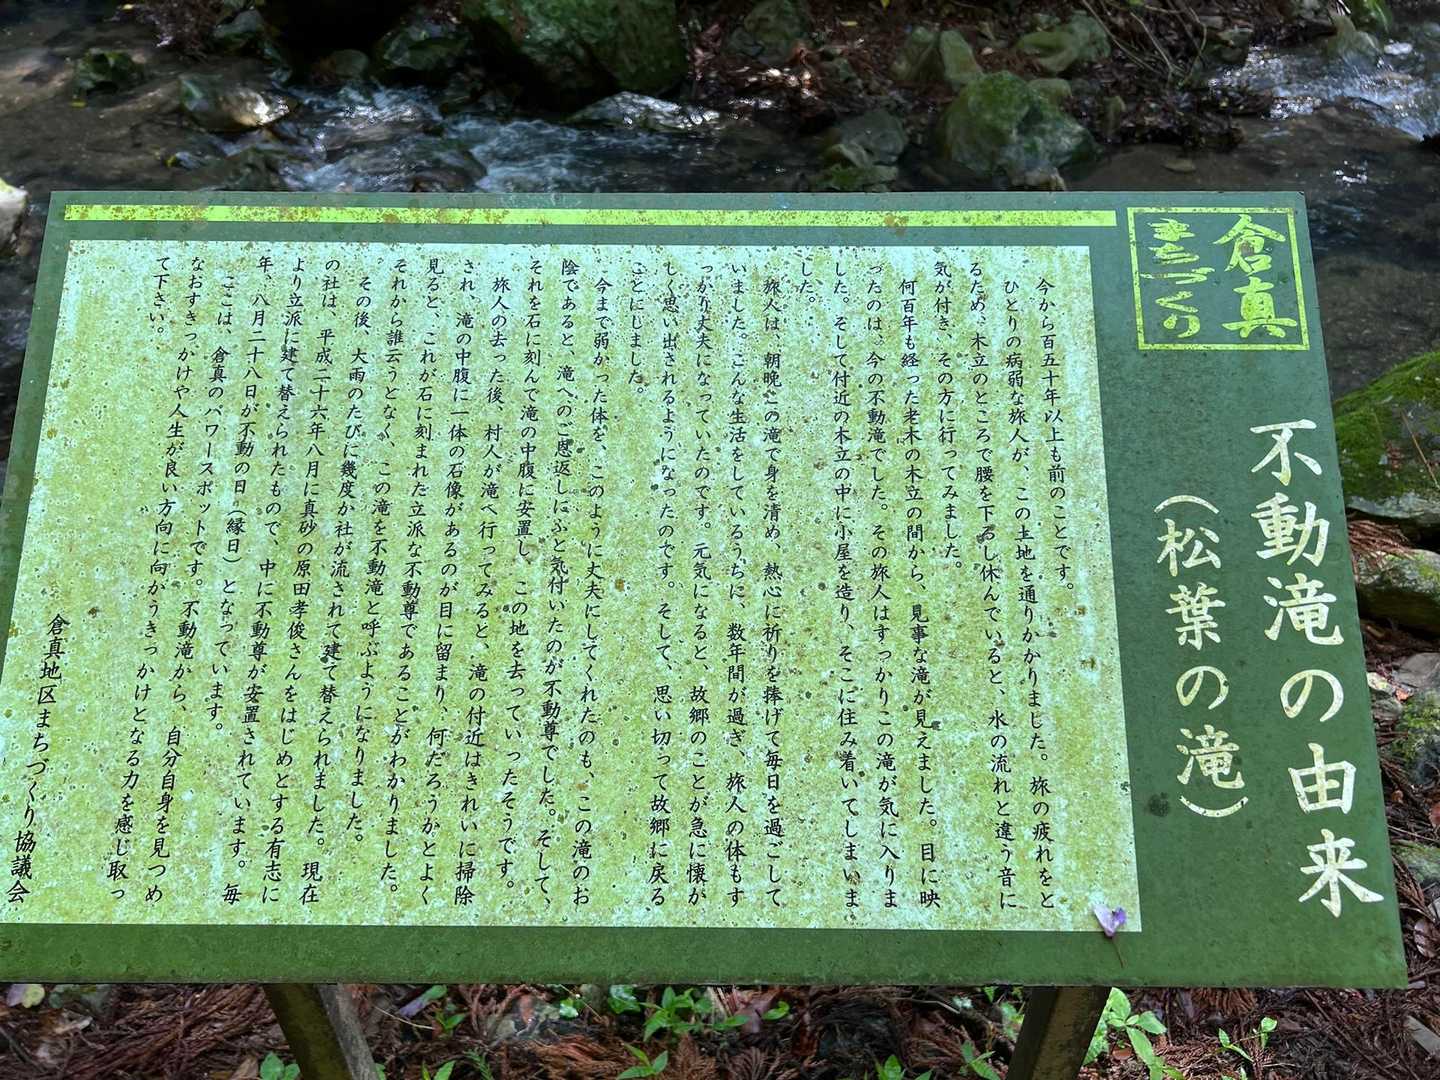 倉真
まちづくり
不動滝の由来
(松葉の滝)
今から百五十年以上も前のことです。
ひとりの病弱な旅人が、この土地を通りかかりました。旅の疲れをと
るため、木立のところで腰を下ろし休んでいると、水の流れと違う音に
気が付き、その方に行ってみました。
何百年も経った老木の木立の間から、見事な滝が見えました。目に映
ったのは、今の不動滝でした。その旅人はすっかりこの滝が気に入りま
した。そして付近の木立の中に小屋を造り、そこに住み着いてしまいま
した。
旅人は、朝晩この滝で身を清め、熱心に祈りを捧げて毎日を過ごして
いました。こんな生活をしているうちに、数年間が過ぎ、旅人の体もす
っかり丈夫になっていたのです。元気になると、故郷のことが急に懐か
しく思い出されるようになったのです。そして、思い切って故郷に戻る
ことにしました。
今まで弱かった体を、このように丈夫にしてくれたのも、この滝のお
陰であると、滝へのご恩返しにふと気付いたのが不動尊でした。そして、
それを石に刻んで滝の中腹に安置し、この地を去っていったそうです。
旅人の去った後、村人が滝へ行ってみると、滝の付近はきれいに掃除
され、滝の中腹に一体の石像があるのが目に留まり、何だろうかとよく
見ると、これが石に刻まれた立派な不動尊であることがわかりました。
それから誰云うとなく、この滝を不動滝と呼ぶようになりました。
その後、大雨のたびに幾度か社が流されて建て替えられました。現在
の社は、平成二十六年八月に真砂の原田孝俊さんをはじめとする有志に
より立派に建て替えられたもので、中に不動尊が安置されています。毎
年、八月二十八日が不動の日(縁日)となっています。
ここは、倉真のパワースポットです。不動滝から、自分自身を見つめ
なおすきっかけや人生が良い方向に向かうきっかけとなる力を感じ取っ
て下さい。
倉真地区まちづくり協議会